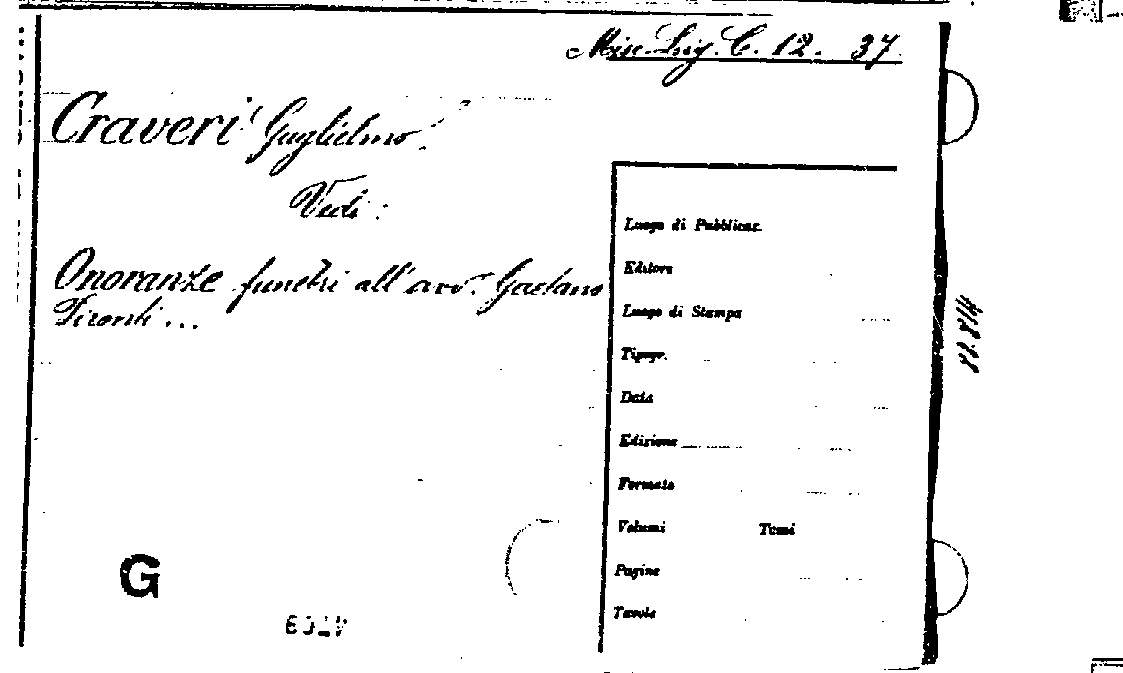 Misc. Lig. C. 12. 37.
Craveri (Guglielmo)
Vedi:
Onoranze funebri all'avv. Gaetano
Tironti...
Luogo di Pubblicaz.
Editore
Luogo di Stampa
Tipogr.
Data
Edizione
Formato
Volumi Tomi
Pagine
Tavole
G